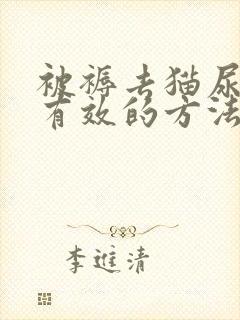 被褥去猫尿
有效的方法
李进清